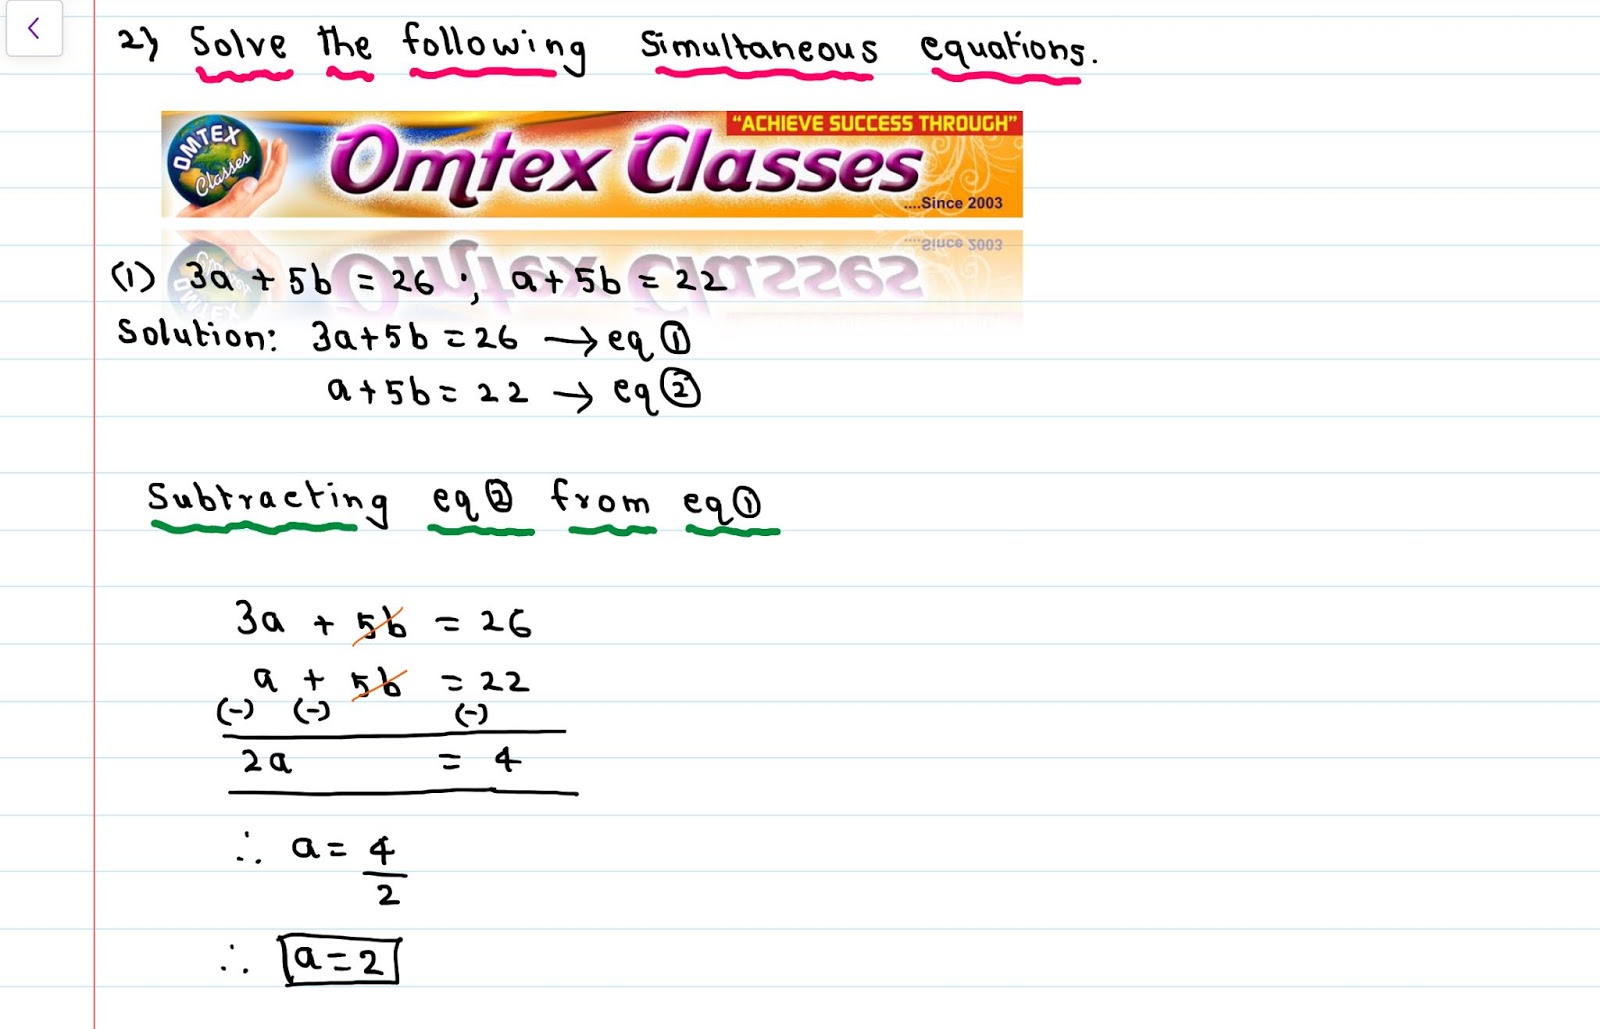 2) Solve the following Simultaneous equations.
"ACHIEVE SUCCESS THROUGH"
OMTEX Classes
Omtex Classes
....Since 2003
(1) 3a + 5b = 26 ; a + 5b = 22
Solution: 3a+5b = 26 → eq ①
a+5b = 22 → eq ②
Subtracting eq ② from eq ①
3a + 5b = 26
a + 5b = 22
(-) (-) (-)
2a = 4
∴ a = 4
2
∴ a = 2